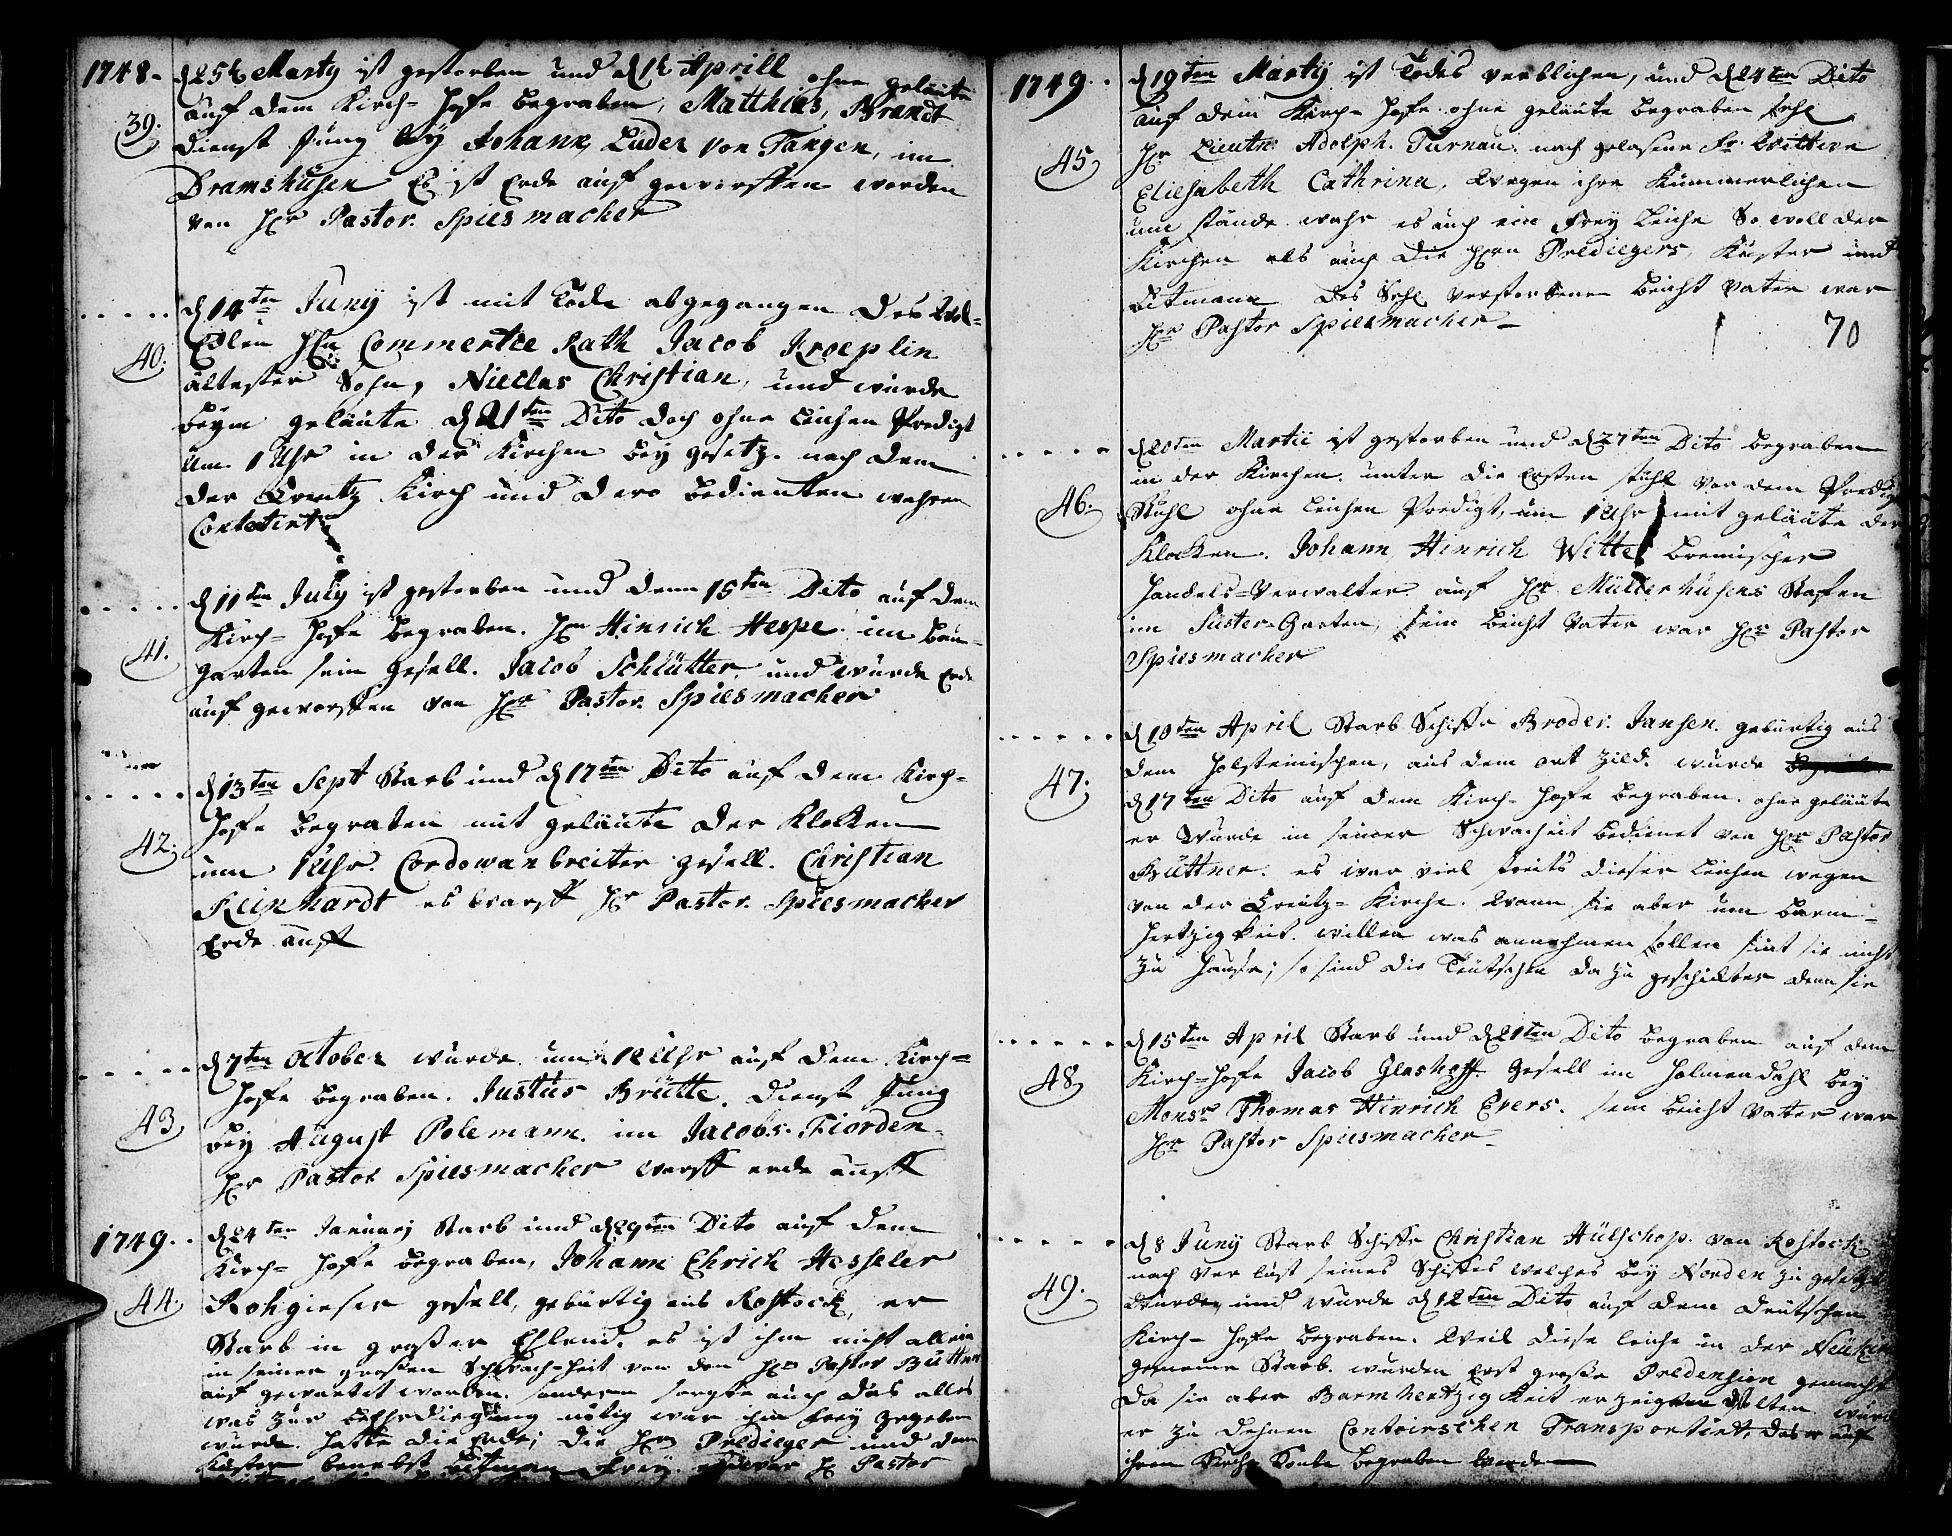 1748. d 25t Marty ist gestorben und d 1t Aprill ohne geleute
auf dem Kirch-Hofe begraben, Matthias, Brandt
39. Dienst Jung bey Johann Luder von Tangen, im
Dramshusen Es ist Erde auf geworffen worden
von Hr Pastor. Spiesmacher
d 14ten Juny ist mit Tode abgegangen des Wol-
40. Edlen Hrn Commertie Rath Jacob Kroeplin
ältester Sohn, Nieclas Christian, und wurde
beym geläute d 21ten Dito doch ohne Leichen Predigt
um 1 Uhr in der Kirchen bey gesetz. nach dem
der Creutz Kirch und dero bedienten wahren
Contetirt
d 11ten July ist gestorben und denn 15ten Dito auf dem
41. Kirch-Hofe begraben. Hrn Hinrich Hespe im bom-
garten sein gesell. Jacob Schlütter, und wurde Erde
auf geworffen von Hr Pastor. Spiesmacher
d 13ten Sept starb und d 17ten Dito auf dem Kirch-
42. Hofe begraben mit geläute der Klocken
um 1 Uhr. Cordowanbreiter gesell. Christian
Reinhardt es warff Hr Pastor. Spiesmacher
Erde auff
d 7ten October wurde um 12 Uhr auf dem Kirch-
43 Hofe begraben. Justus Brütte. Dienst Jung
bey August Polemann. im Jacobs-Fiorden
Hr Pastor Spiesmacher warff erde auff
1749. d 24ten January starb und d 29ten Dito auf dem
Kirch-Hofe begraben, Johann Ehrich Hesseler
44. Rohgieser gesell, gebürtig aus Rostock, er
starb in großer Ehlend. es ist ihm nicht allein
in seiner großen Schwach-heit von den Hrn Pastor Büttner
auf gewartet worden. sondern sorgte auch das alles
was zur beEhrdiegung nötig war ihm frey gegeben
wurde. hatte die Erde; die Hrn Predieger und dem
Küster benebst bitman Frey. war Hr Pastor
1749. d 19ten Marty ist Todes verblichen, und d 24ten Dito
auf dem Kirch-Hofe ohne geläute begraben sehl
45 Hr Lieutn: Adolph. Turnau. nach gelasene Fr. Wittwe
Eliesabeth Cathrina, wegen ihre Kümmerlichen
um stände wahr es auch ein Frey Leiche So woll der
Kirchen als auch die Hrn Predieger, Küster und
bitmann des Sehl verstorbenen beicht Vater war
Hr Pastor Spiesmacher
70
d 20ten Martii ist gestorben und d 27ten Dito begraben
in der Kirchen. unter die Ersten stühl vor dem Predig
46. Stuhl ohne Leichen Predigt, um 1 Uhr mit geläute der
Klocken. Johann Hinrich Witte bremischer
Handels-Verwalter auf Hr Müllerhusens Stafen
im Süster-Garten, sein beicht Vater war Hr Pastor
Spiesmacher
d 10ten April starb Schiffr Broder Jansen. gebürtig aus
dem Holsteinischen, aus dem ort Zild. wurde
47. d 17ten Dito auf dem Kirch-Hofe begraben. ohne geläute
er wurde in seiner Schwacheit bedienet von Hr Pastor
Büttner. es war viel streits dieser Leichen wegen
von der Creutz-Kirche. wann sie aber um barm-
hertzigkeit. willen was annehmen sollen sint sie nicht
zu Hause; so sind die Teütschen da zu geschickter denn sie
d 15ten April starb und d 21ten Dito begraben auf dem
48 Kirch-Hofe Jacob Glashoff. gesell im Holmendahl bey
Monsr Thomas Hinrich Evers. sein beicht Vater war
Hr Pastor Spiesmacher
d 8 Juny starb Schiffr Christian Hülschop. von Rostock
nach Verlust seines Schiffes welches bey Norden zu gesetzt
49. wurde, und wurde d 12ten Dito auf dem Deutschen
Kirch-Hofe begraben. weil diese leiche in der Neükirch
gemeine starb. wurden Erst große Predension gemacht
da sie aber Barmhertzigkeit erzeigen solten wurd
er zu dehnen Contoirschen Transportirt, das er auf
ihrem Kirch Konte begraben werden